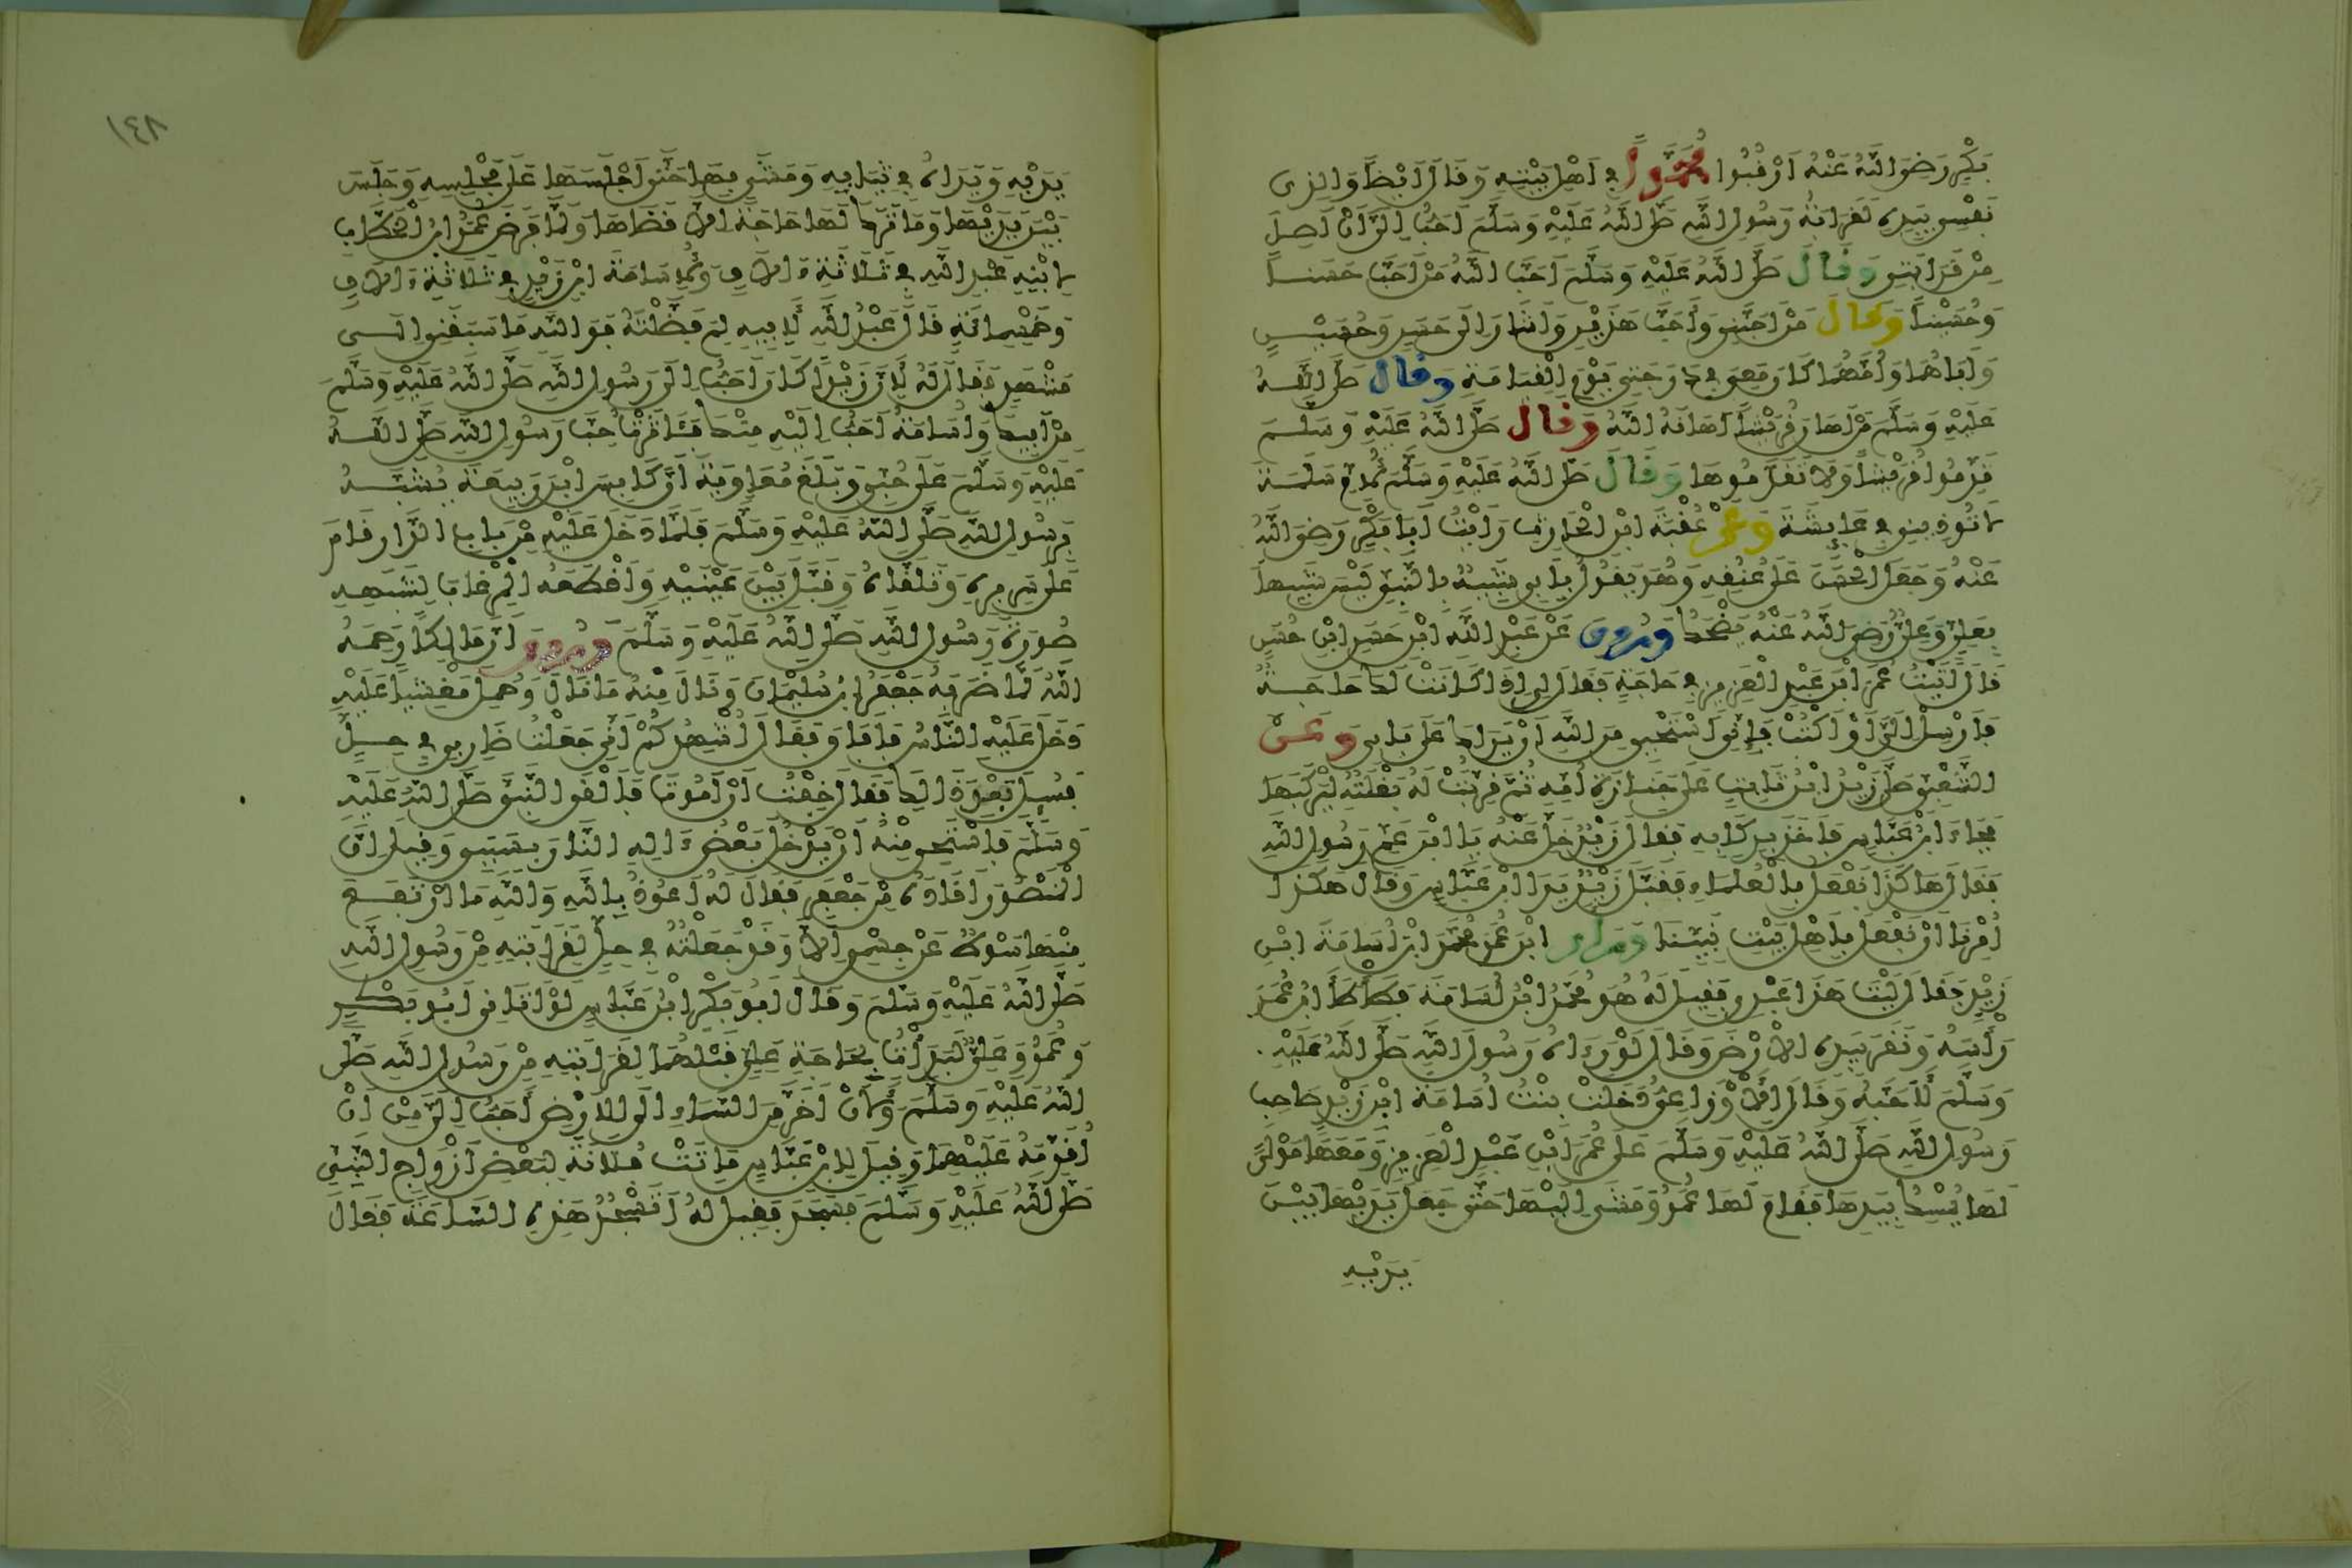 بَكْرٍ رَضِيَ اللَّهُ عَنْهُ ارْقُبُوا مُحَمَّداً فِي اَهْلِ بَيْتِهِ وَقَالَ اَيْضاً وَالذِي
نَفْسِي بِيَدِهِ لَقَرَابَةُ رَسُولِ اللَّهِ صَلَّى اللَّهُ عَلَيْهِ وَسَلَّمَ اَحَبُّ اِلَيَّ اَنْ اَصِلَ
مِنْ قَرَابَتِي وَقَالَ صَلَّى اللَّهُ عَلَيْهِ وَسَلَّمَ اَحَبَّ اللَّهُ مَنْ اَحَبَّ حَسَناً
وَحُسَيْناً وَقَالَ مَنْ اَحَبَّنِي وَاَحَبَّ هَذَيْنِ وَاَشَارَ اِلَى حَسَنٍ وَحُسَيْنٍ
وَاَبَاهُمَا وَاُمَّهُمَا كَانَ مَعِي فِي دَرَجَتِي يَوْمَ الْقِيَامَةِ وَقَالَ صَلَّى اللَّهُ
عَلَيْهِ وَسَلَّمَ مَنْ اَهَانَ قُرَيْشاً اَهَانَهُ اللَّهُ وَقَالَ صَلَّى اللَّهُ عَلَيْهِ وَسَلَّمَ
قَدِّمُوا قُرَيْشاً وَلَا تَقَدَّمُوهَا وَقَالَ صَلَّى اللَّهُ عَلَيْهِ وَسَلَّمَ لِاُمِّ سَلَمَةَ
لَا تُوذِينِي فِي عَايِشَةَ وَعَنْ عُقْبَةَ ابْنِ الْحَارِثِ رَاَيْتُ اَبَا بَكْرٍ رَضِيَ اللَّهُ
عَنْهُ وَجَعَلَ الْحَسَنَ عَلَى عُنُقِهِ وَهُوَ يَقُولُ بِاَبِي شَبِيهٌ بِالنَّبِيِّ لَيْسَ شَبِيهاً
بِعَلِيٍّ وَعَلِيٌّ رَضِيَ اللَّهُ عَنْهُ يَضْحَكُ وَرُوِيَ عَنْ عَبْدِ اللَّهِ ابْنِ حَسَنِ ابْنِ حُسَيْنٍ
قَالَ اَتَيْتُ عُمَرَ ابْنَ عَبْدِ الْعَزِيزِ فِي حَاجَةٍ فَقَالَ لِي اِذَا كَانَتْ لَكَ حَاجَةٌ
فَاَرْسِلْ اِلَيَّ اَوْ اكْتُبْ فَاِنِّي اَسْتَحْيِي مِنَ اللَّهِ اَنْ يَرَاكَ عَلَى بَابِي وَعَنِ
الشَّعْبِيِّ صَلَّى زَيْدُ ابْنُ ثَابِتٍ عَلَى جَنَازَةِ اُمِّهِ ثُمَّ قُرِّبَتْ لَهُ بَغْلَتُهُ لِيَرْكَبَهَا
فَجَاءَ ابْنُ عَبَّاسٍ فَاَخَذَ بِرِكَابِهِ فَقَالَ زَيْدٌ خَلِّ عَنْهُ يَا ابْنَ عَمِّ رَسُولِ اللَّهِ
فَقَالَ هَاكَذَا نَفْعَلُ بِالْعُلَمَاءِ فَقَبَّلَ زَيْدٌ يَدَ ابْنِ عَبَّاسٍ وَقَالَ هَكَذَا
اُمِرْنَا اَنْ نَفْعَلَ بِاَهْلِ بَيْتِ نَبِيِّنَا وَرَاَى ابْنُ عُمَرَ مُحَمَّدَ ابْنَ اُسَامَةَ ابْنِ
زَيْدٍ فَقَالَ لَيْتَ هَذَا عَبْدِي فَقِيلَ لَهُ هُوَ مُحَمَّدُ ابْنُ اُسَامَةَ فَطَاْطَاَ ابْنُ عُمَرَ
رَاْسَهُ وَنَقَرَ بِيَدِهِ الْاَرْضَ وَقَالَ لَوْ رَءَاهُ رَسُولُ اللَّهِ صَلَّى اللَّهُ عَلَيْهِ
وَسَلَّمَ لَاَحَبَّهُ وَقَالَ الْاَوْزَاعِيُّ دَخَلَتْ بِنْتُ اُسَامَةَ ابْنِ زَيْدٍ صَاحِبِ
رَسُولِ اللَّهِ صَلَّى اللَّهُ عَلَيْهِ وَسَلَّمَ عَلَى عُمَرَ ابْنِ عَبْدِ الْعَزِيزِ وَمَعَهَا مَوْلًى
لَهَا يُمْسِكُ بِيَدِهَا فَقَامَ لَهَا عُمَرُ وَمَشَى اِلَيْهَا حَتَّى جَعَلَ يَدَيْهَا بَيْنَ
يَدَيْهِ
١٤٨
يَدَيْهِ وَيَدَاهُ فِي ثِيَابِهِ وَمَشَى بِهَا حَتَّى اَجْلَسَهَا عَلَى مَجْلِسِهِ وَجَلَسَ
بَيْنَ يَدَيْهَا وَمَا تَرَكَ لَهَا حَاجَةً اِلَّا قَضَاهَا وَلَمَّا فَرَضَ عُمَرُ ابْنُ الْخَطَّابِ
لِابْنِهِ عَبْدِ اللَّهِ فِي ثَلَاثَةِ ءَالَافٍ وَلِاُسَامَةَ ابْنِ زَيْدٍ فِي ثَلَاثَةِ ءَالَافٍ
وَخَمْسِمِائَةٍ قَالَ عَبْدُ اللَّهِ لِاَبِيهِ لِمَ فَضَّلْتَهُ فَوَاللَّهِ مَا سَبَقَنِي اِلَى
مَشْهَدٍ فَقَالَ لَهُ لِاَنَّ زَيْداً كَانَ اَحَبَّ اِلَى رَسُولِ اللَّهِ صَلَّى اللَّهُ عَلَيْهِ وَسَلَّمَ
مِنْ اَبِيكَ وَاُسَامَةُ اَحَبُّ اِلَيْهِ مِنْكَ فَئَاثَرْتُ حُبَّ رَسُولِ اللَّهِ صَلَّى اللَّهُ
عَلَيْهِ وَسَلَّمَ عَلَى حُبِّي وَبَلَغَ مُعَاوِيَةَ اَنَّ كَابِسَ ابْنَ رَبِيعَةَ يُشَبَّهُ
بِرَسُولِ اللَّهِ صَلَّى اللَّهُ عَلَيْهِ وَسَلَّمَ فَلَمَّا دَخَلَ عَلَيْهِ مِنْ بَابِ الدَّارِ قَامَ
عَلَى سَرِيرِهِ وَتَلَقَّاهُ وَقَبَّلَ بَيْنَ عَيْنَيْهِ وَاَقْطَعَهُ الْمِرْغَابَ لِشَبَهِهِ
صُورَةَ رَسُولِ اللَّهِ صَلَّى اللَّهُ عَلَيْهِ وَسَلَّمَ وَرُوِيَ اَنَّ مَالِكاً رَحِمَهُ
اللَّهُ لَمَّا ضَرَبَهُ جَعْفَرُ ابْنُ سُلَيْمَانَ وَنَالَ مِنْهُ مَا نَالَ وَحُمِلَ مَغْشِيّاً عَلَيْهِ
دَخَلَ عَلَيْهِ النَّاسُ فَاَفَاقَ فَقَالَ اُشْهِدُكُمْ اَنِّي جَعَلْتُ ضَارِبِي فِي حِلٍّ
فَسُئِلَ بَعْدَ ذَالِكَ فَقَالَ خِفْتُ اَنْ اَمُوتَ فَاَلْقَى النَّبِيَّ صَلَّى اللَّهُ عَلَيْهِ
وَسَلَّمَ فَاَسْتَحِي مِنْهُ اَنْ يَدْخُلَ بَعْضُ ءَالِهِ النَّارَ بِسَبَبِي وَقِيلَ اِنَّ
الْمَنْصُورَ اَقَادَهُ مِنْ جَعْفَرٍ فَقَالَ لَهُ اَعُوذُ بِاللَّهِ وَاللَّهِ مَا ارْتَفَعَ
مِنْهَا سَوْطٌ عَنْ جِسْمِي اِلَّا وَقَدْ جَعَلْتُهُ فِي حِلٍّ لِقَرَابَتِهِ مِنْ رَسُولِ اللَّهِ
صَلَّى اللَّهُ عَلَيْهِ وَسَلَّمَ وَقَالَ اَبُو بَكْرِ ابْنُ عَيَّاشٍ لَوْ اَتَانِي اَبُو بَكْرٍ
وَعُمَرُ وَعَلِيٌّ لَبَدَاْتُ بِحَاجَةِ عَلِيٍّ قَبْلَهُمَا لِقَرَابَتِهِ مِنْ رَسُولِ اللَّهِ صَلَّى
اللَّهُ عَلَيْهِ وَسَلَّمَ وَلَاَنْ اَخِرَّ مِنَ السَّمَاءِ اِلَى الْاَرْضِ اَحَبُّ اِلَيَّ مِنْ اَنْ
اُقَدِّمَهُ عَلَيْهِمَا وَقِيلَ لِابْنِ عَبَّاسٍ مَاتَتْ فُلَانَةٌ لِبَعْضِ اَزْوَاجِ النَّبِيِّ
صَلَّى اللَّهُ عَلَيْهِ وَسَلَّمَ فَسَجَدَ فَقِيلَ لَهُ اَتَسْجُدُ هَذِهِ السَّاعَةَ فَقَالَ